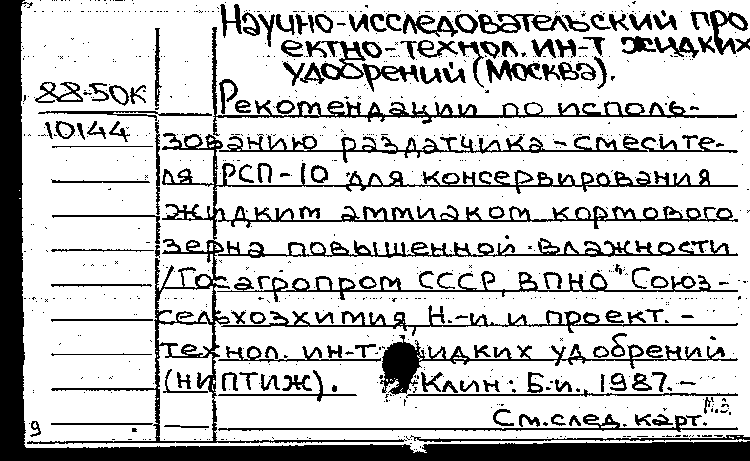 Научно-исследовательский про
ектно-технол. ин-т жидких
удобрений (Москва).
88-50К
Рекомендации по исполь-
10144
зованию раздатчика-смесите-
ля РСП-10 для консервирования
жидким аммиаком кормового
зерна повышенной влажности
/Госагропром СССР, ВПНО "Союз-
сельхозхимия, Н.-и. и проект.-
технол. ин-т жидких удобрений
(НИПТИЖ). Клин: Б.и., 1987.-
См. след. карт.
М.З.
9